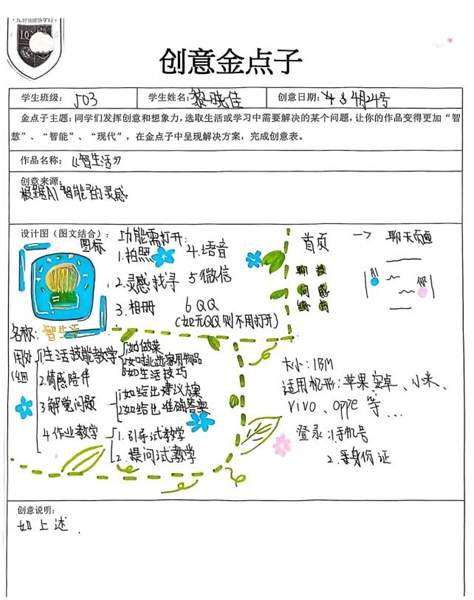 创意金点子
学生班级： 503 学生姓名：黎晓佳 创意日期： 4月24号
金点子主题：同学们发挥创意和想象力，选取生活或学习中需要解决的某个问题，让你的作品变得更加“智
慧”、“智能”、“现代”，在金点子中呈现解决方案，完成创意表。
作品名称：《智生活》
创意来源：
根据AI智能的灵感
设计图（图文结合）：
图标
功能需打开：
1.拍照 4.语音
2.灵感找寻 5微信
3.相册 6QQ
(如无QQ则不用打开)
首页 → 聊天页面
聊
问 感
AI
你
名称：智生活
1生活技能教学
1如做菜
2如
3如生活技巧
2.情感陪伴
3解觉问题
1.如给出建议方案
2如给出准确答案
4作业教学
1.引导试教学
2.提问试教学
大小：18M
适用机形：苹果、安卓、小米、
vivo、oppe等...
登录：1手机号
2.身份证
创意说明：
如上述.